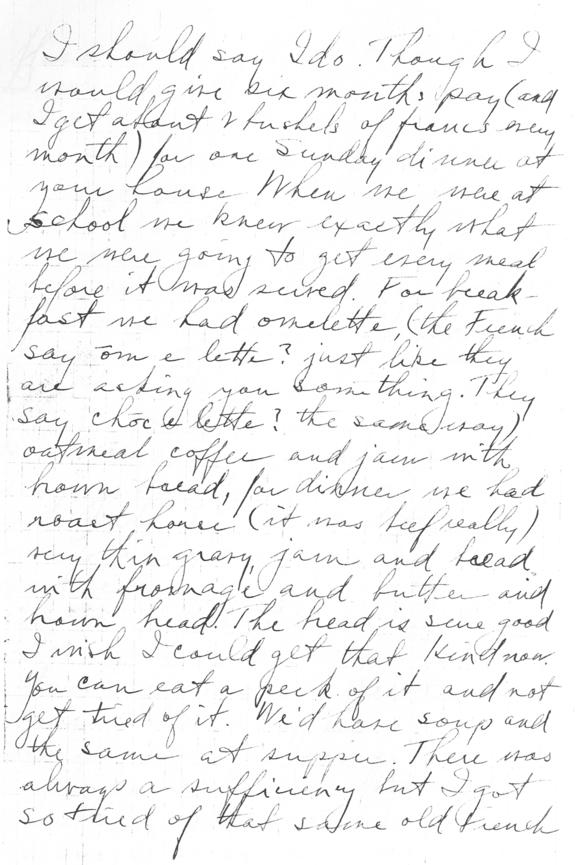 I should say I do. Though I
would give six months pay (and
I get about 2 bushels of francs every
month) for one Sunday dinner at
your house When we were at
school we knew exactly what
we were going to get every meal
before it was served. For break-
fast we had omelette, (the French
say ōm e lette? just like they
are asking you something. They
say choc e lette? the same way)
oatmeal coffee and jam with
brown bread, for dinner we had
roast horse (it was beef really)
very thin gravy, jam and bread
with fromage and butter and
brown bread. The bread is sure good
I wish I could get that kind now.
You can eat a peck of it and not
get tired of it. We'd have soup and
the same at supper. There was
always a sufficiency but I got
so tired of that same old French